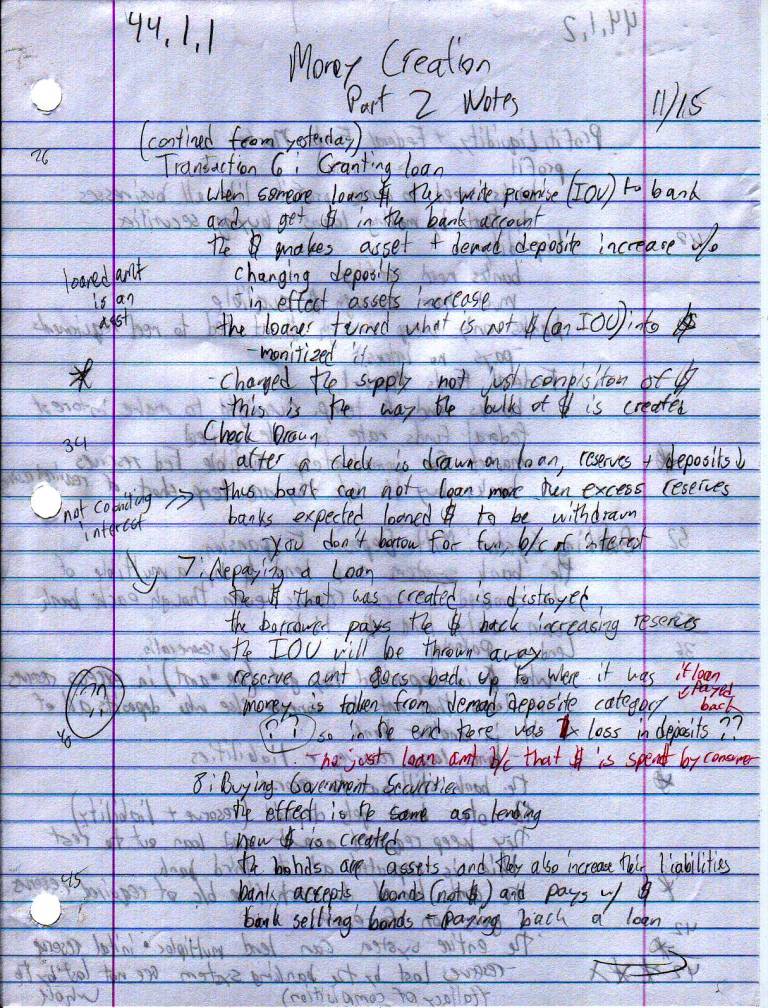 44.1.1
Money Creation
Part 2 Notes 11/15
(contined from yesterday)
26
Transaction 6: Granting loan
when someone loans $ they write promise (IOU) to bank
and get $ in the bank account
the $ makes asset + demad deposite increase w/o
changing deposits
loaned amt
is an
asst
in effect assets increase
the loaner turned what is not $ (an IOU) into $
- monitized it
* - changed the supply not just compisiton of $
this is the way the bulk of $ is created
Check Drawn
34
after a check is drawn on loan, reserves + deposits ↓
thus bank can not loan more then excess reserves
not counting
interest
banks expected loaned $ to be withdrawn
you don't borrow for fun b/c of interest
7: Repaying a Loan
the $ that was created is distroyed
the borrowed pays the $ back increasing reserves
the IOU will be thrown away
reserve amt goes back up to where it was if loan
payed
back
money is taken from demad deposite category
??
40
?? so in the end there was loss in deposits ??
- no just loan amt b/c that $ is spent by consumer
8: Buying Government Securities
the effect is the same as lending
new $ is created
45
the bonds are assets and they also increase their liabilities
bank accepts bonds (not $) and pays w/ $
bank selling bonds - paying back a loan